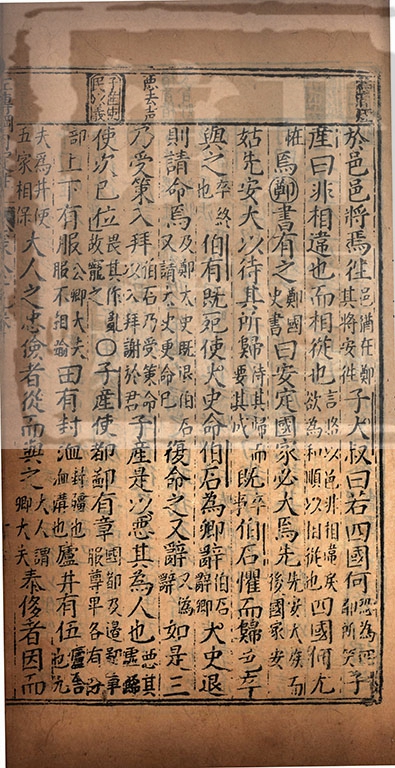 於邑邑將焉往邑猶在鄭其將安往子大叔曰若四國何恐為四鄰所笑子
產曰非相違也而相從也言將以邑非相違戾欲為和順以相從也四國何尤
怪焉鄭書有之鄭國史書曰安定國家必大焉先先安大族而後國家安
姑先安大以待其所歸待其歸而要其成既卒事伯石懼而歸邑卒
與之卒終也伯有既死使大史命伯石為卿辭伯石辭卿大史退
則請命焉及鄭大史既退伯石又請大史更命己復命之又辭又為辭如是三
惡去声
乃受策入拜伯石乃受策命以入拜謝於君子產是以惡其為人也惡其虛飾
子產使民以義
使次己位畏其作亂故寵之○子產使都鄙有章國都及邊鄙車服尊卑各有分
部上下有服公卿大夫服不相踰田有封洫封疆也洫溝也廬井有伍廬舍也九
夫為井使五家相保大人之忠儉者從而與之大人謂卿大夫泰侈者因而